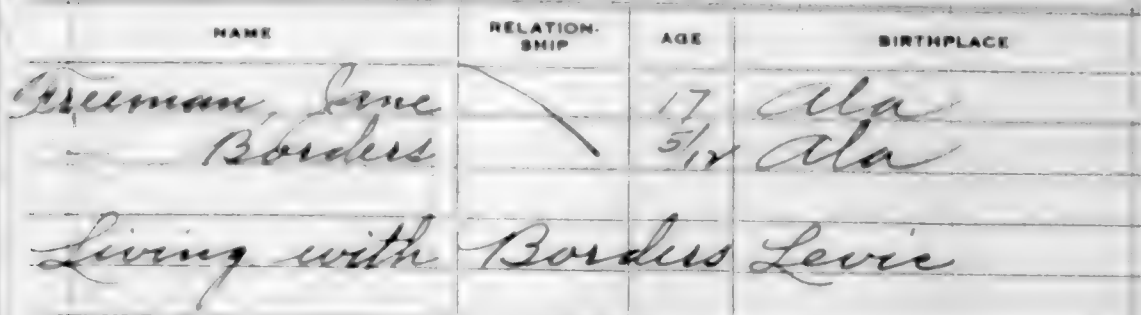 NAME RELATION-SHIP AGE BIRTHPLACE
Freeman, Jane 17 Ala
— Borders 5/12 Ala
Living with Borders Levie